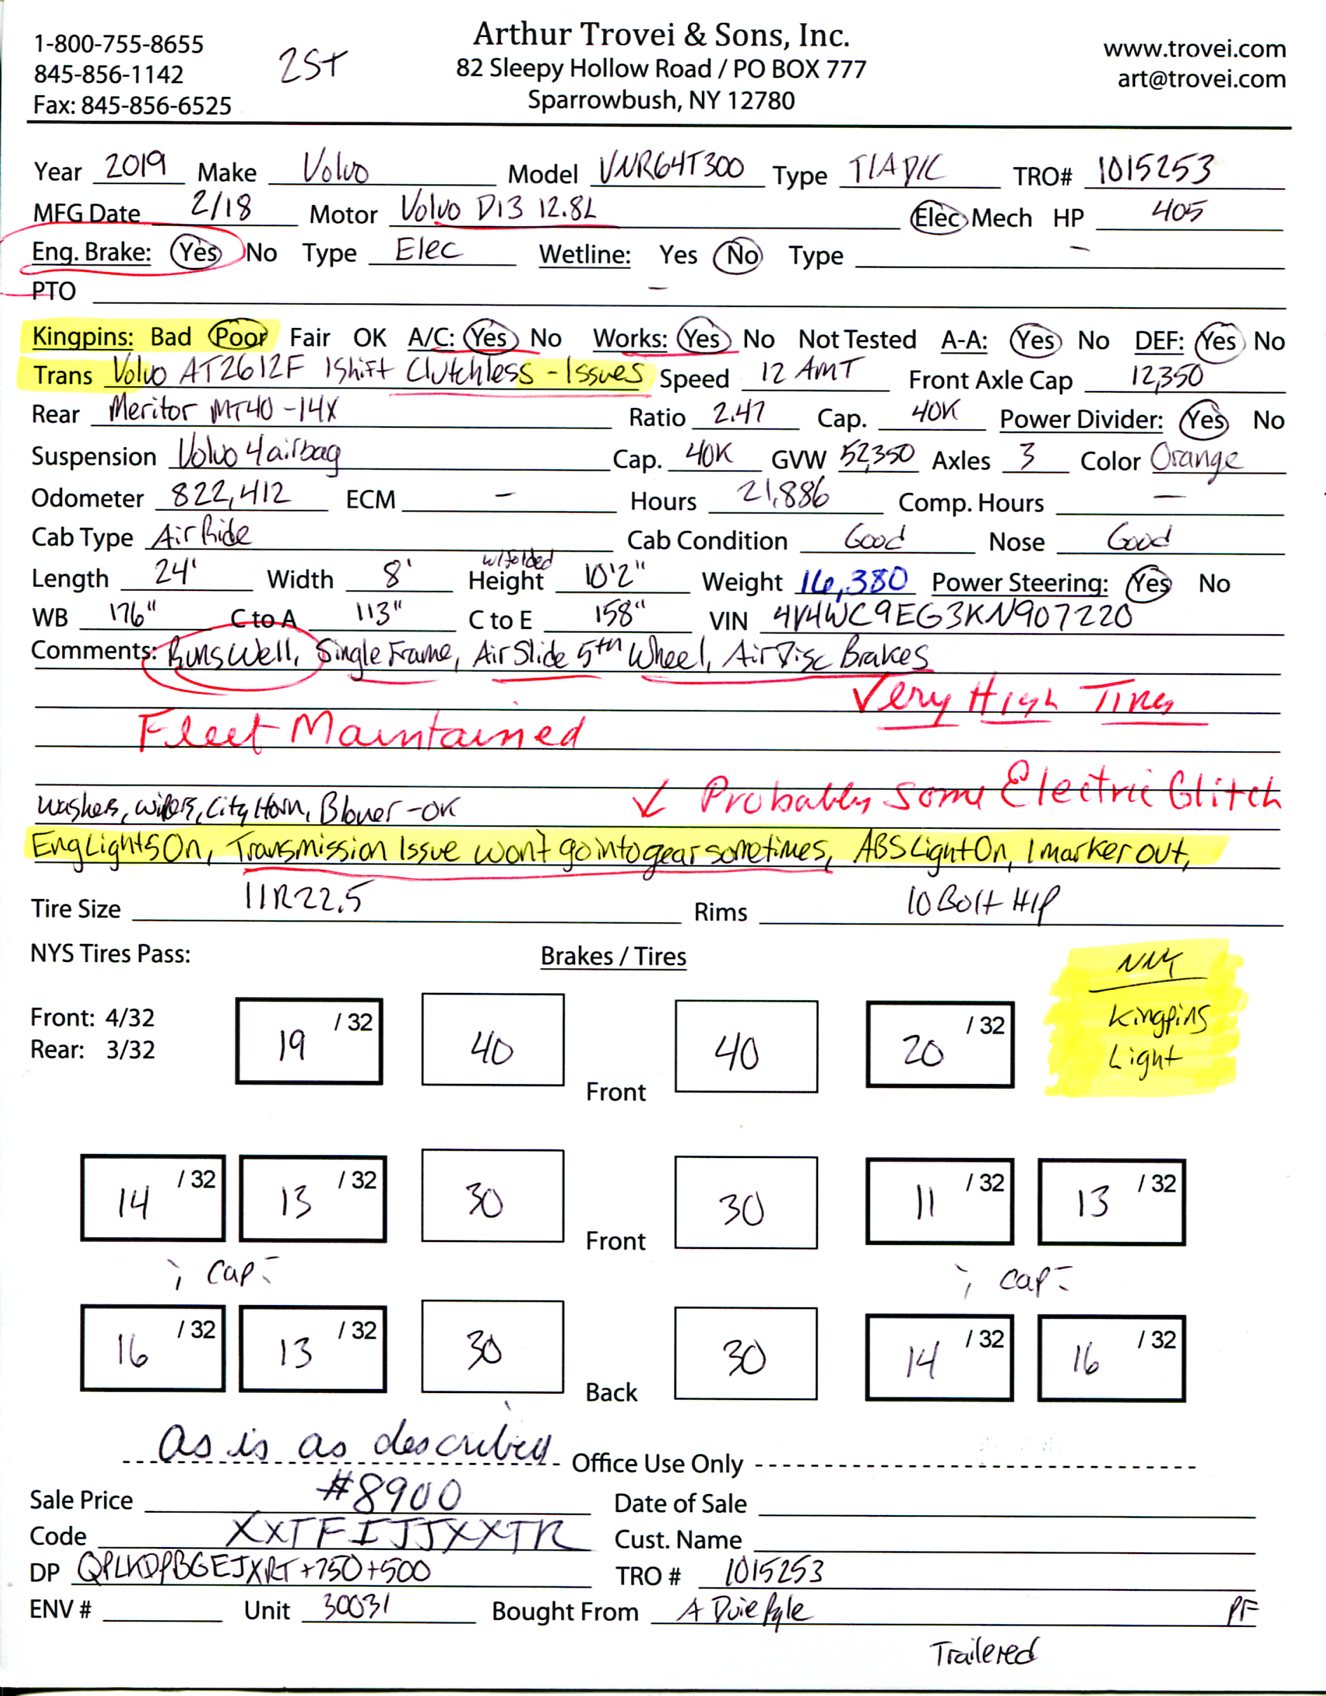 Arthur Trovei & Sons, Inc.
1-800-755-8655 82 Sleepy Hollow Road / PO BOX 777 www.trovei.com
845-856-1142 2ST Sparrowbush, NY 12780 art@trovei.com
Fax: 845-856-6525
Year 2019 Make Volvo Model VNR64T300 Type T/A D/C TRO# 1015253
MFG Date 2/18 Motor Volvo D13 12.8L Elec Mech HP 405
Eng. Brake: Yes No Type Elec Wetline: Yes No Type -
PTO -
Kingpins: Bad Poor Fair OK A/C: Yes No Works: Yes No Not Tested A-A: Yes No DEF: Yes No
Trans Volvo AT2612F IShift Clutchless - Issues Speed 12 AMT Front Axle Cap 12,350
Rear Meritor MT40-14X Ratio 2.47 Cap. 40K Power Divider: Yes No
Suspension Volvo 4 airbag Cap. 40K GVW 52,350 Axles 3 Color Orange
Odometer 822,412 ECM - Hours 21,886 Comp. Hours -
Cab Type Air Ride Cab Condition Good Nose Good
w/folded
Length 24' Width 8' Height 10'2" Weight 16,380 Power Steering: Yes No
WB 176" C to A 113" C to E 158" VIN 4V4WC9EG3KN907220
Comments: Runs Well, Single Frame, Air Slide 5th Wheel, Air Disc Brakes
Very High Tires
Fleet Maintained
Washers, Wipers, City Horn, Blower - OK Probably Some Electric Glitch
Eng Lights On, Transmission Issue won't go into gear sometimes, ABS Light On, 1 marker out,
Tire Size 11R22.5 Rims 10 Bolt H/P
NYS Tires Pass: Brakes / Tires NNY
Front: 4/32 Kingpins
Rear: 3/32 Light
19 /32 40 Front 40 20 /32
14 /32 13 /32 30 Front 30 11 /32 13 /32
; cap ; cap
16 /32 13 /32 30 Back 30 14 /32 16 /32
As is as described Office Use Only
Sale Price #8900 Date of Sale
Code XXTFIJJXXTR Cust. Name
DP QPLKDPBGEJXRT+750+500 TRO # 1015253
ENV # Unit 30031 Bought From A Duie Pyle PF
Trailered